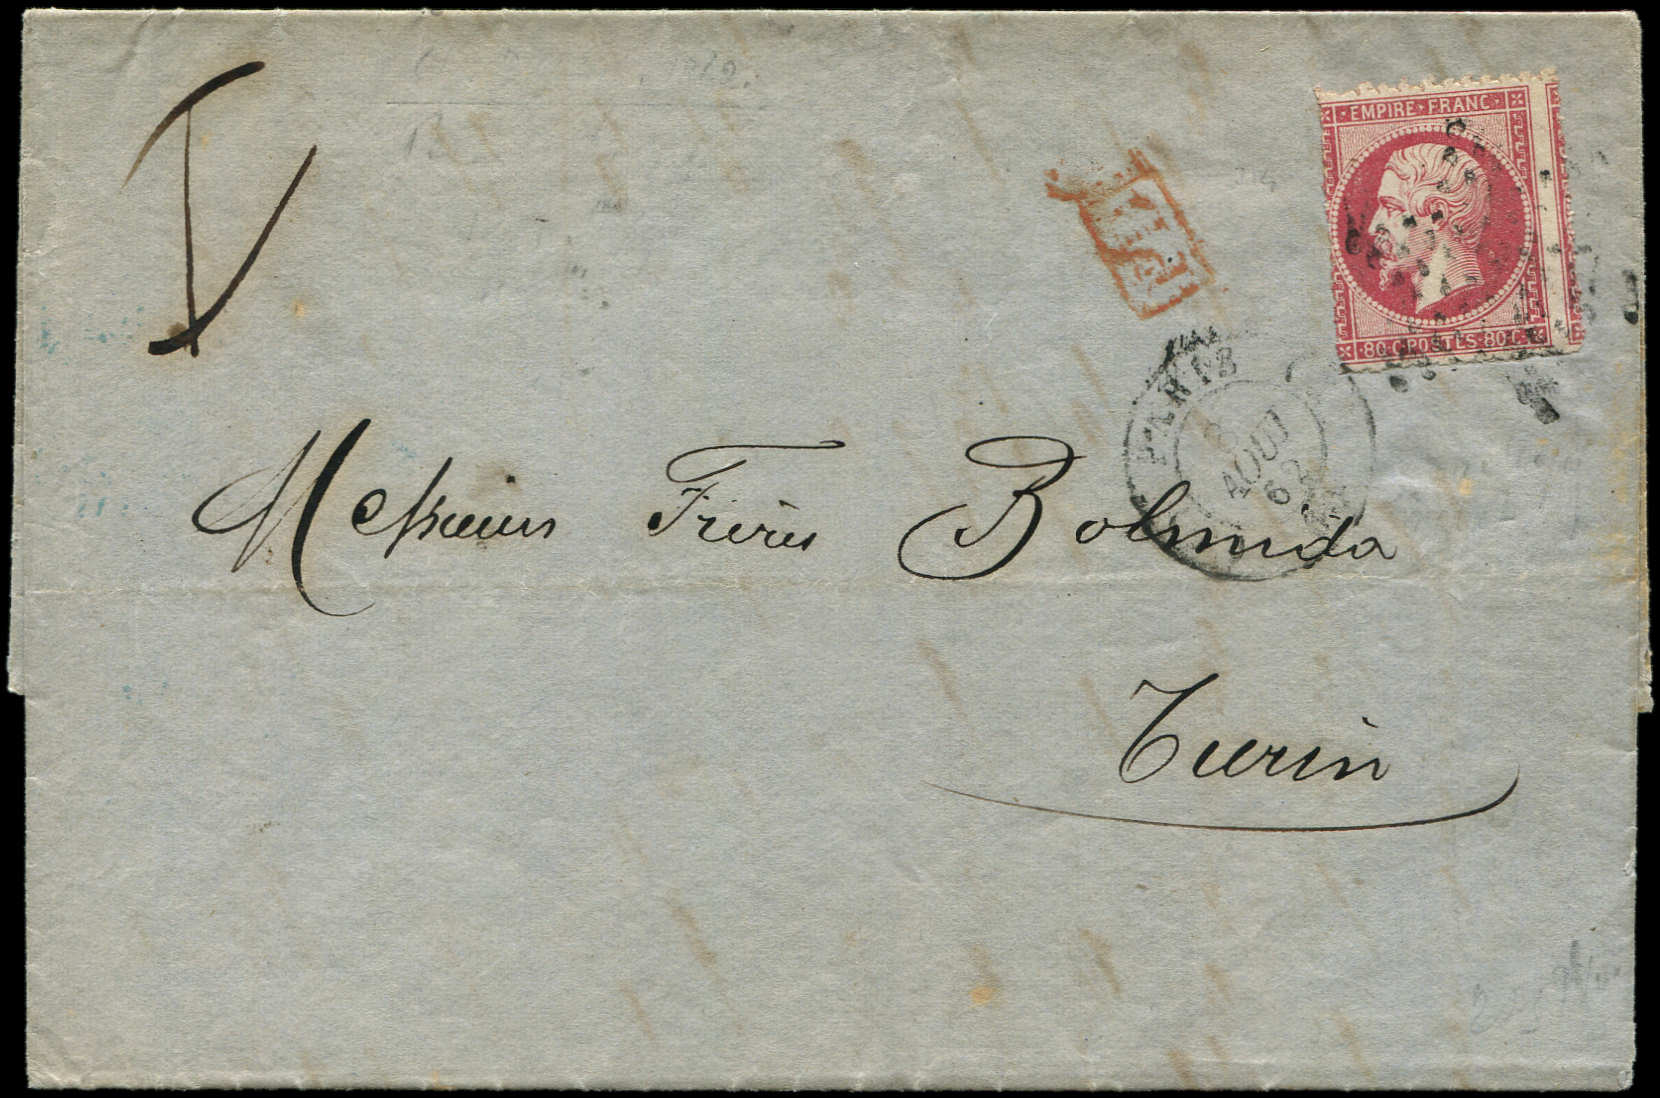 EMPIRE FRANC
80 C POSTES 80 C
P.D.
PARIS
AOUT
62
Messieurs Frères Bolmida
Turin